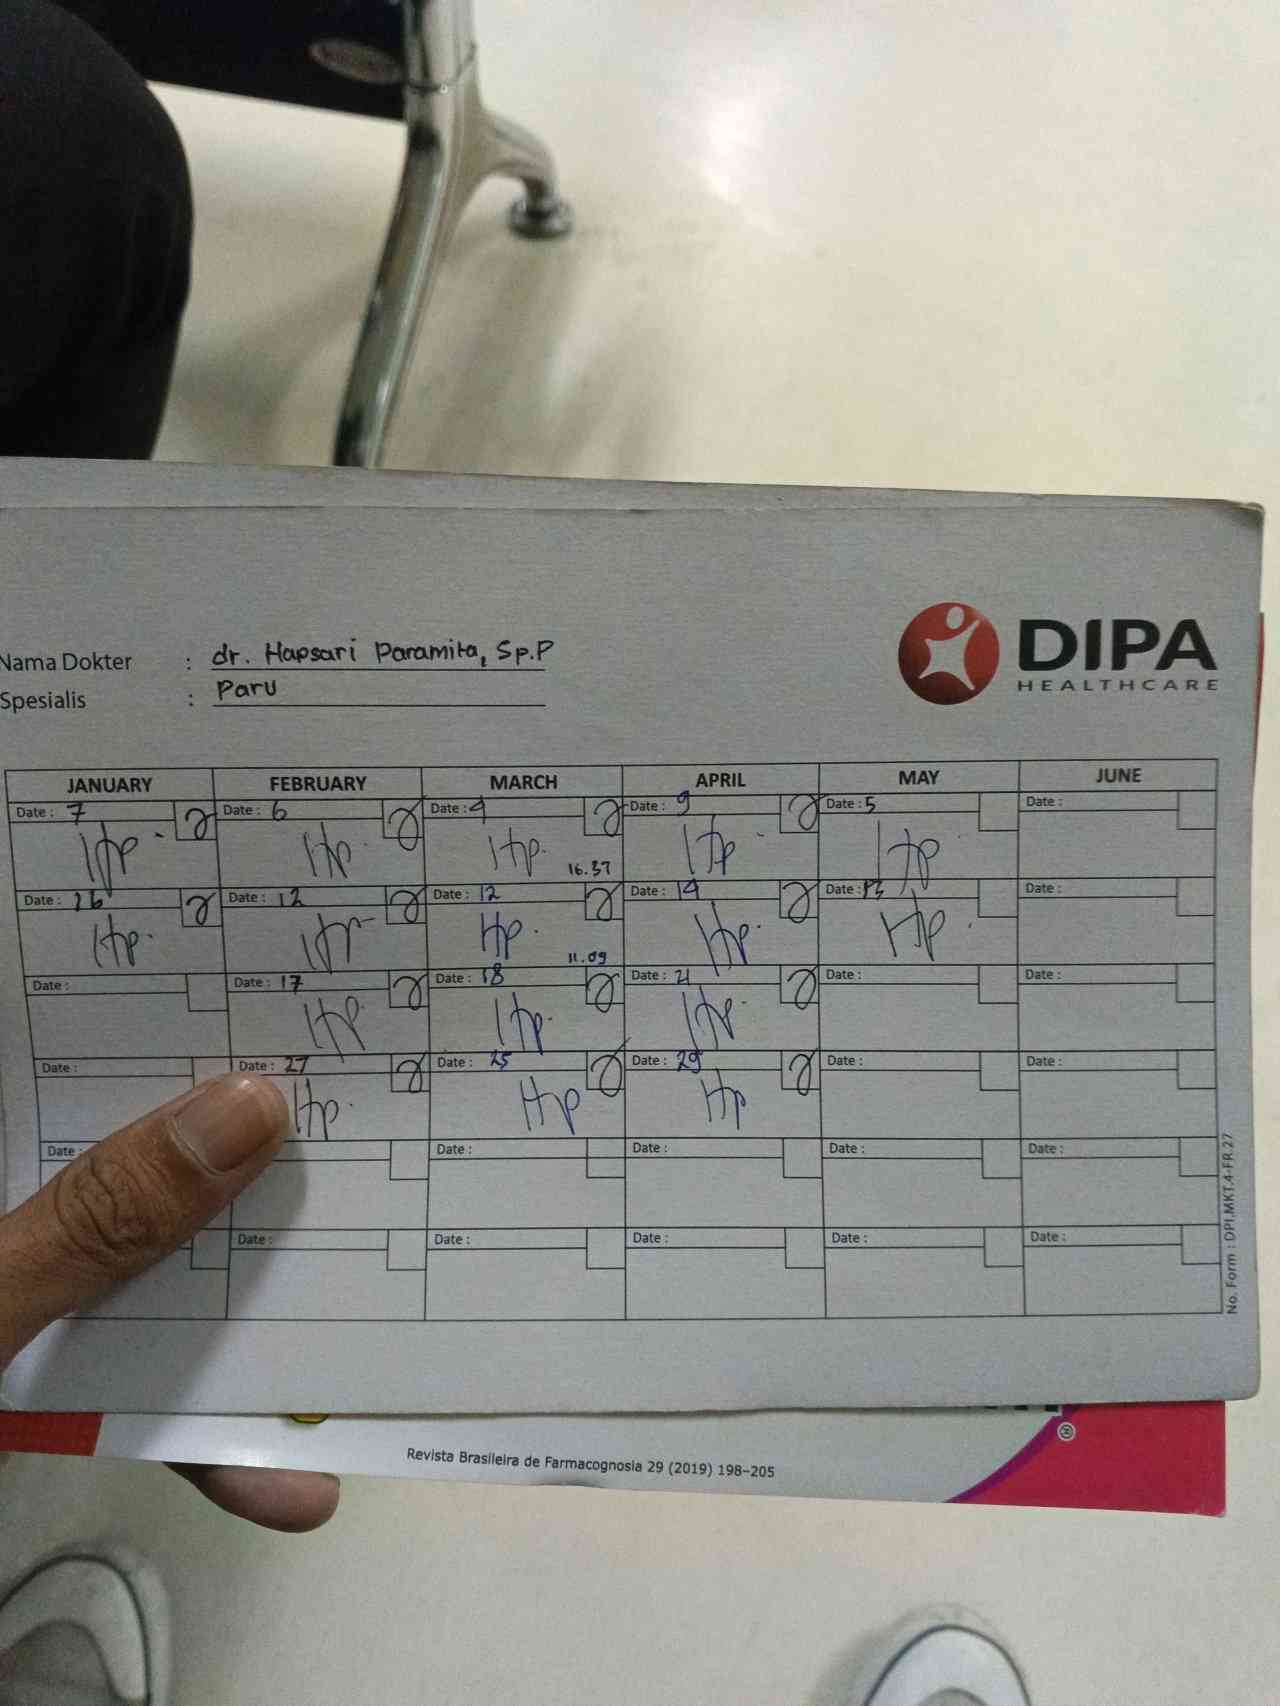 Nama Dokter : dr. Hapsari Paramita, Sp.P
Spesialis : Paru
DIPA
HEALTHCARE
JANUARY FEBRUARY MARCH APRIL MAY JUNE
Date : 7 Date : 6 Date : 4 Date : 9 Date : 5 Date :
Hp. Hp. Hp. Hp Hp
16.37
Date : 16 Date : 12 Date : 12 Date : 14 Date : 13 Date :
Hp. Hp Hp. Hp. Hp.
11.09
Date : Date : 17 Date : 18 Date : 21 Date : Date :
Hp Hp. Hp.
Date : Date : 27 Date : 25 Date : 29 Date : Date :
Hp. Hp Hp
Date : Date : Date : Date : Date :
Date : Date : Date : Date : Date :
No. Form : DPI.MKT.4-FR.27
Revista Brasileira de Farmacognosia 29 (2019) 198–205
®